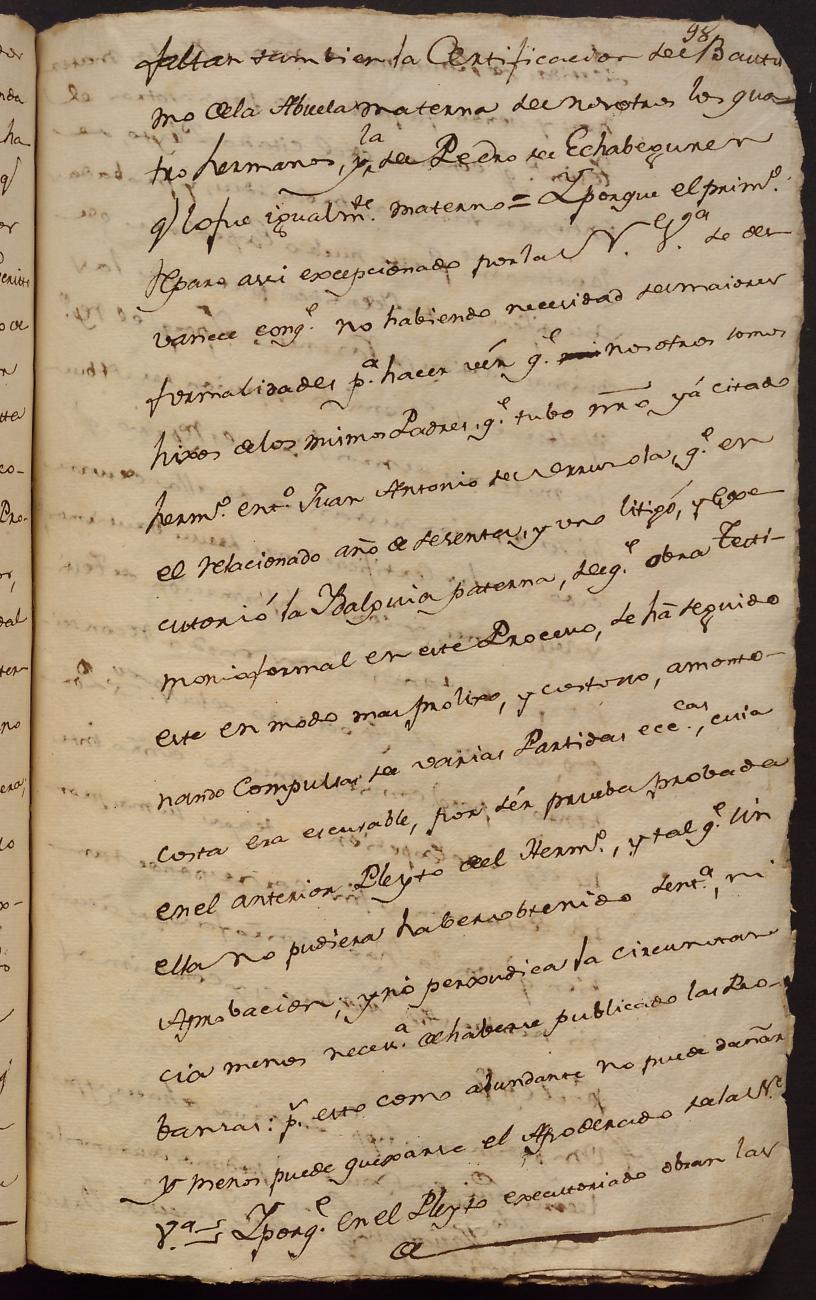 98
faltan tambien la Certificacion del Bautis
mo de la Abuela materna de nosotros los qua=
tro hermanos, y la de Pedro de Echabeguren
q.e lo fue igualm.te materno = Y porque el prim.o
reparo assi excepcionado por la N. V.a se des
vanece conq.e no habiendo necesidad de maiores
formalidades p.a hacer vér q.e nosotros somos
hixos de los mismos Padres, q.e tubo nro yá citado
herm.o ent.o Juan Antonio de Verrueta, q.e en
el relacionado año de sesenta, y uno litigó, y Exe
cutorió la Hidalguia paterna, de q.e obra Testi-
monio formal en este Proceso, se há seguido
este en modo mas prolixo, y costoso, amonto-
nando Compulsas de varias Partidas ecc.cas, cuia
costa era escusable, por sér prueba probada
en el anterior Pleyto del Herm.o, y tal q.e sin
ella no pudiera haber obtenido sent.a, ni
Aprobacion; y nó perxudica la circunstan
cia menos neces.a de haberse publicado las Pro-
banzas: p.r esto como abundante no puede dañar
y menos puede quexarse el Apoderado de la N.e
V.a = Y porq.e en el Pleyto executoriado obran las